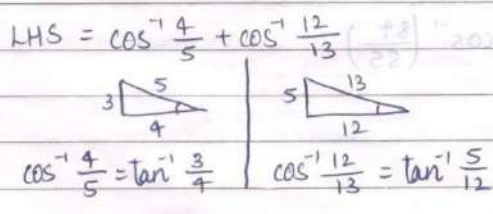 LHS = cos⁻¹ 4/5 + cos⁻¹ 12/13
3 5 4
5 13 12
cos⁻¹ 4/5 = tan⁻¹ 3/4 | cos⁻¹ 12/13 = tan⁻¹ 5/12